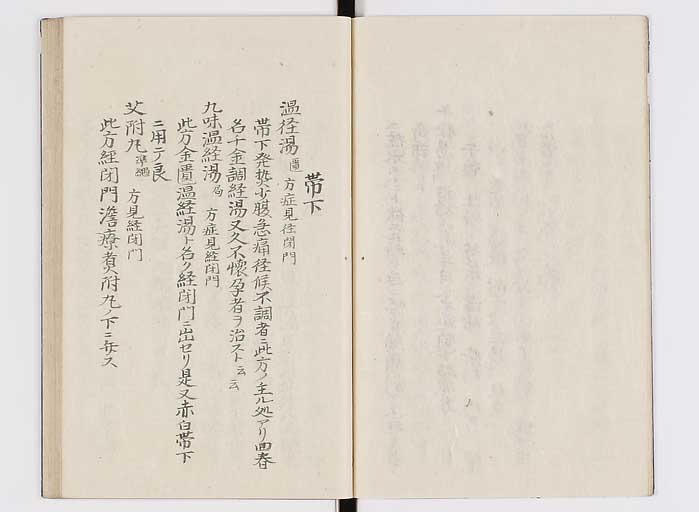 帯下
温径湯 匱 方症見径閉門
帯下発熱少腹急痛径候不調者ニ此方ノ主ル処アリ回春
名千金調経湯又久不懐孕者ヲ治スト云云
九味温経湯 局 方症見経閉門
此方金匱温経湯ト名ク経閉門ニ出セリ是又赤白帯下
ニ用テ良
艾附丸 準縄 方見経閉門
此方経閉門澹療煮附丸ノ下ニ弁ス